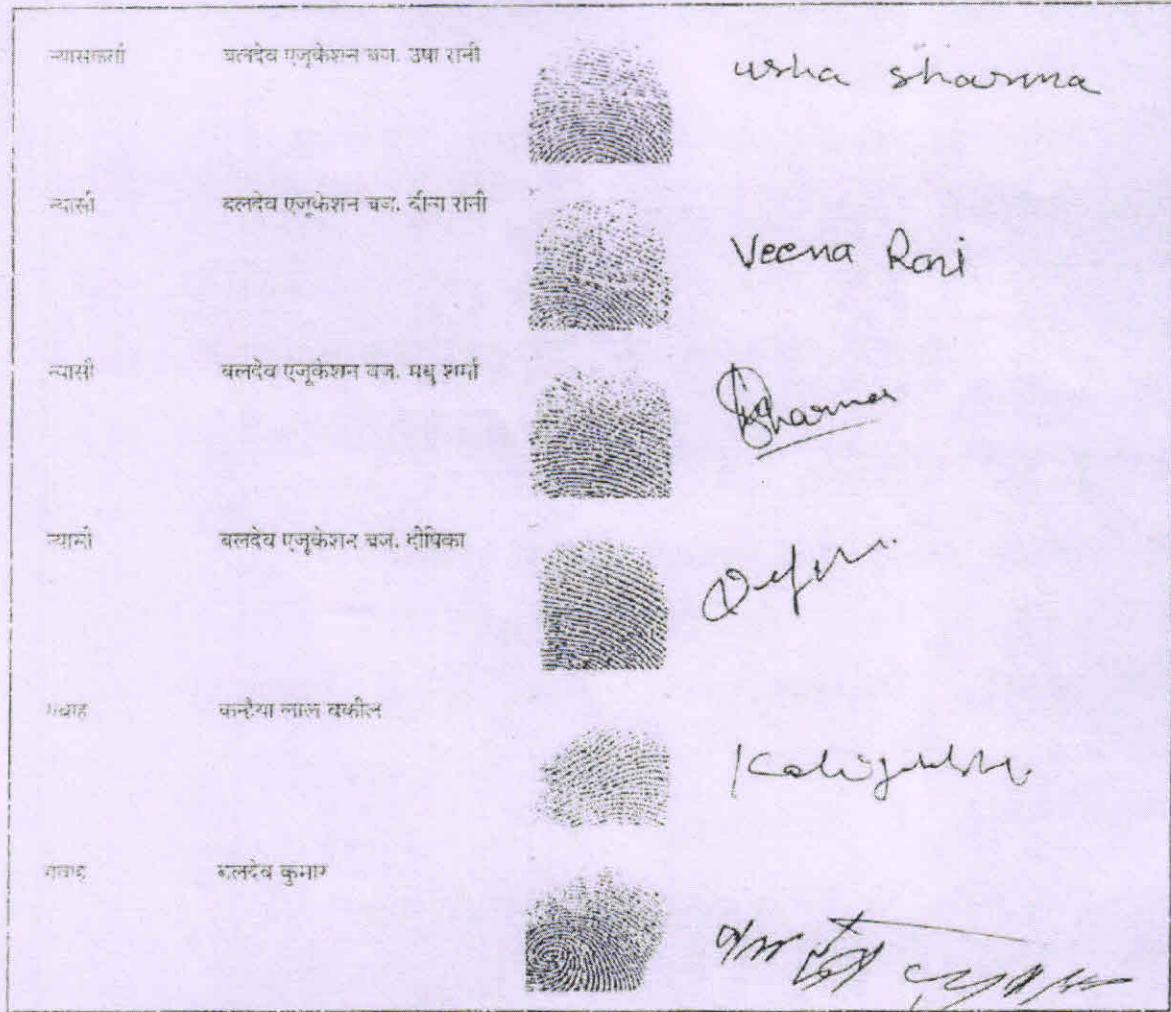 न्यासकर्ता बलदेव एजूकेशन बज. उषा रानी usha sharma
न्यासी बलदेव एजूकेशन बज. वीना रानी Veena Rani
न्यासी बलदेव एजूकेशन बज. मधु शर्मा Sharma
न्यासी बलदेव एजूकेशन बज. दीपिका
गवाह कन्हैया लाल वकील
गवाह बलदेव कुमार